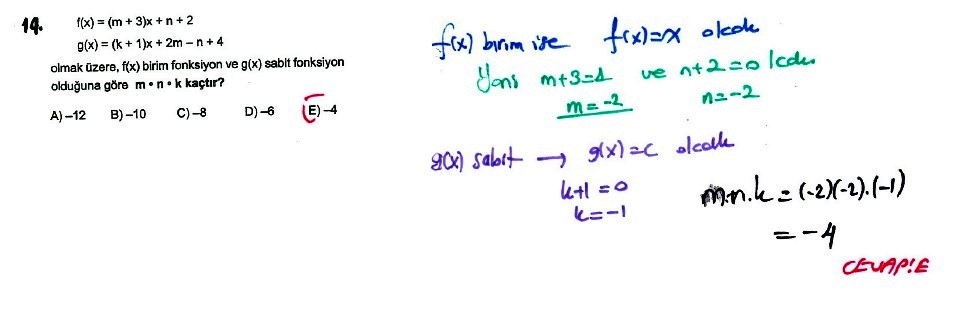 14.
f(x) = (m + 3)x + n + 2
g(x) = (k + 1)x + 2m – n + 4
olmak üzere, f(x) birim fonksiyon ve g(x) sabit fonksiyon
olduğuna göre m • n • k kaçtır?
A) –12 B) –10 C) –8 D) –6 E) –4
f(x) birim ise f(x)=x olcak
Yani m+3=1 ve n+2=0 lcdu
m=-2 n=-2
g(x) sabit → g(x)=c olcak
k+1=0
k=-1
m.n.k = (-2)(-2).(-1)
= -4
CEVAP:E